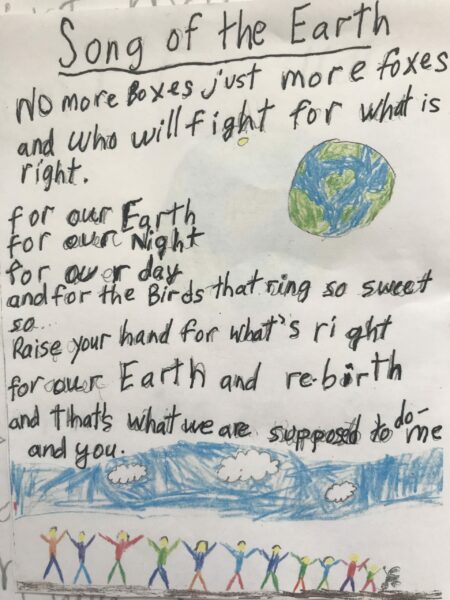 Song of the Earth
No more Boxes just more foxes
and who will fight for what is
right.
for our Earth
for our Night
for our day
and for the Birds that ring so sweet
so...
Raise your hand for what's right
for our Earth and re-birth
and that's what we are supposed to do-me
and you.